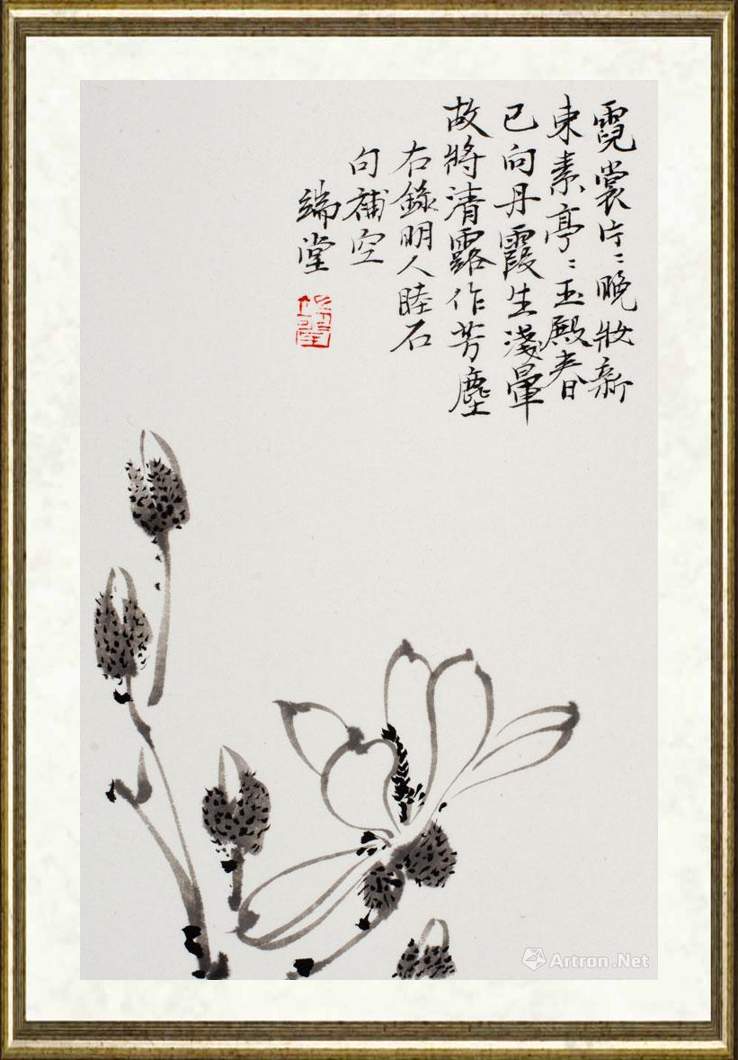 霓裳片〻晚妝新
束素亭〻玉殿春
已向丹霞生淺暈
故將清露作芳塵
右錄明人睦石
句補空
端堂
Artron.Net